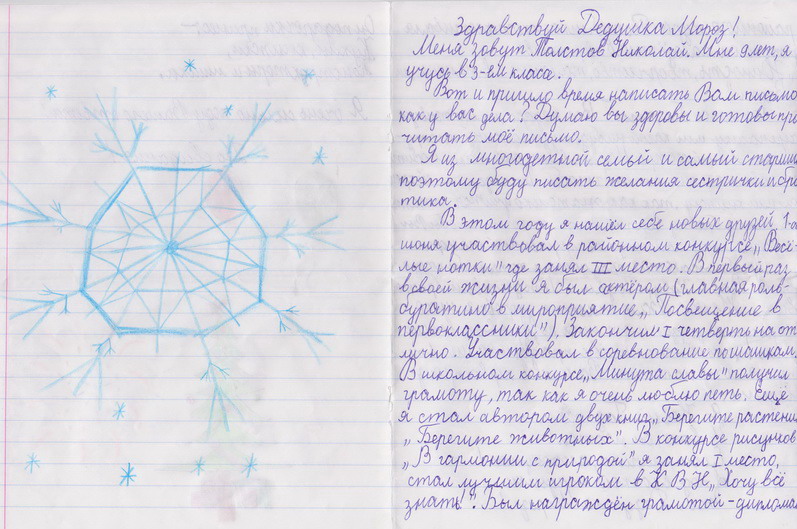 Здравствуй Дедушка Мороз!
Меня зовут Толстов Николай. Мне 9 лет, я
учусь в 3-ем класса.
Вот и пришло время написать Вам письмо
как у вас дела? Думаю вы здоровы и готовы про
читать моё письмо.
Я из многодетной семьй и самый старший
поэтому буду писать желания сестрички и бра
тика.
В этом году я нашёл себе новых друзей, 1-ого
июня участвовал в районном конкурсе „Весё-
лые нотки" где занял III место. В первый раз
в своей жизни я был актёром (главная роль-
буратино в мироприятие „Посвещение в
первоклассники"). Закончил I четверть на от
лично. Участвовал в соревнование по шашкам.
В школьном конкурсе „Минута славы" получил
грамоту, так как я очень люблю петь. Ещё
я стал автором двух книг „Берегите растения
„Берегите животных". В конкурсе рисунков
„В гармонии с природой" я занял I место,
стал лучшим игроком в К В Н „Хочу всё
знать!". Был награждён грамотой-диплома